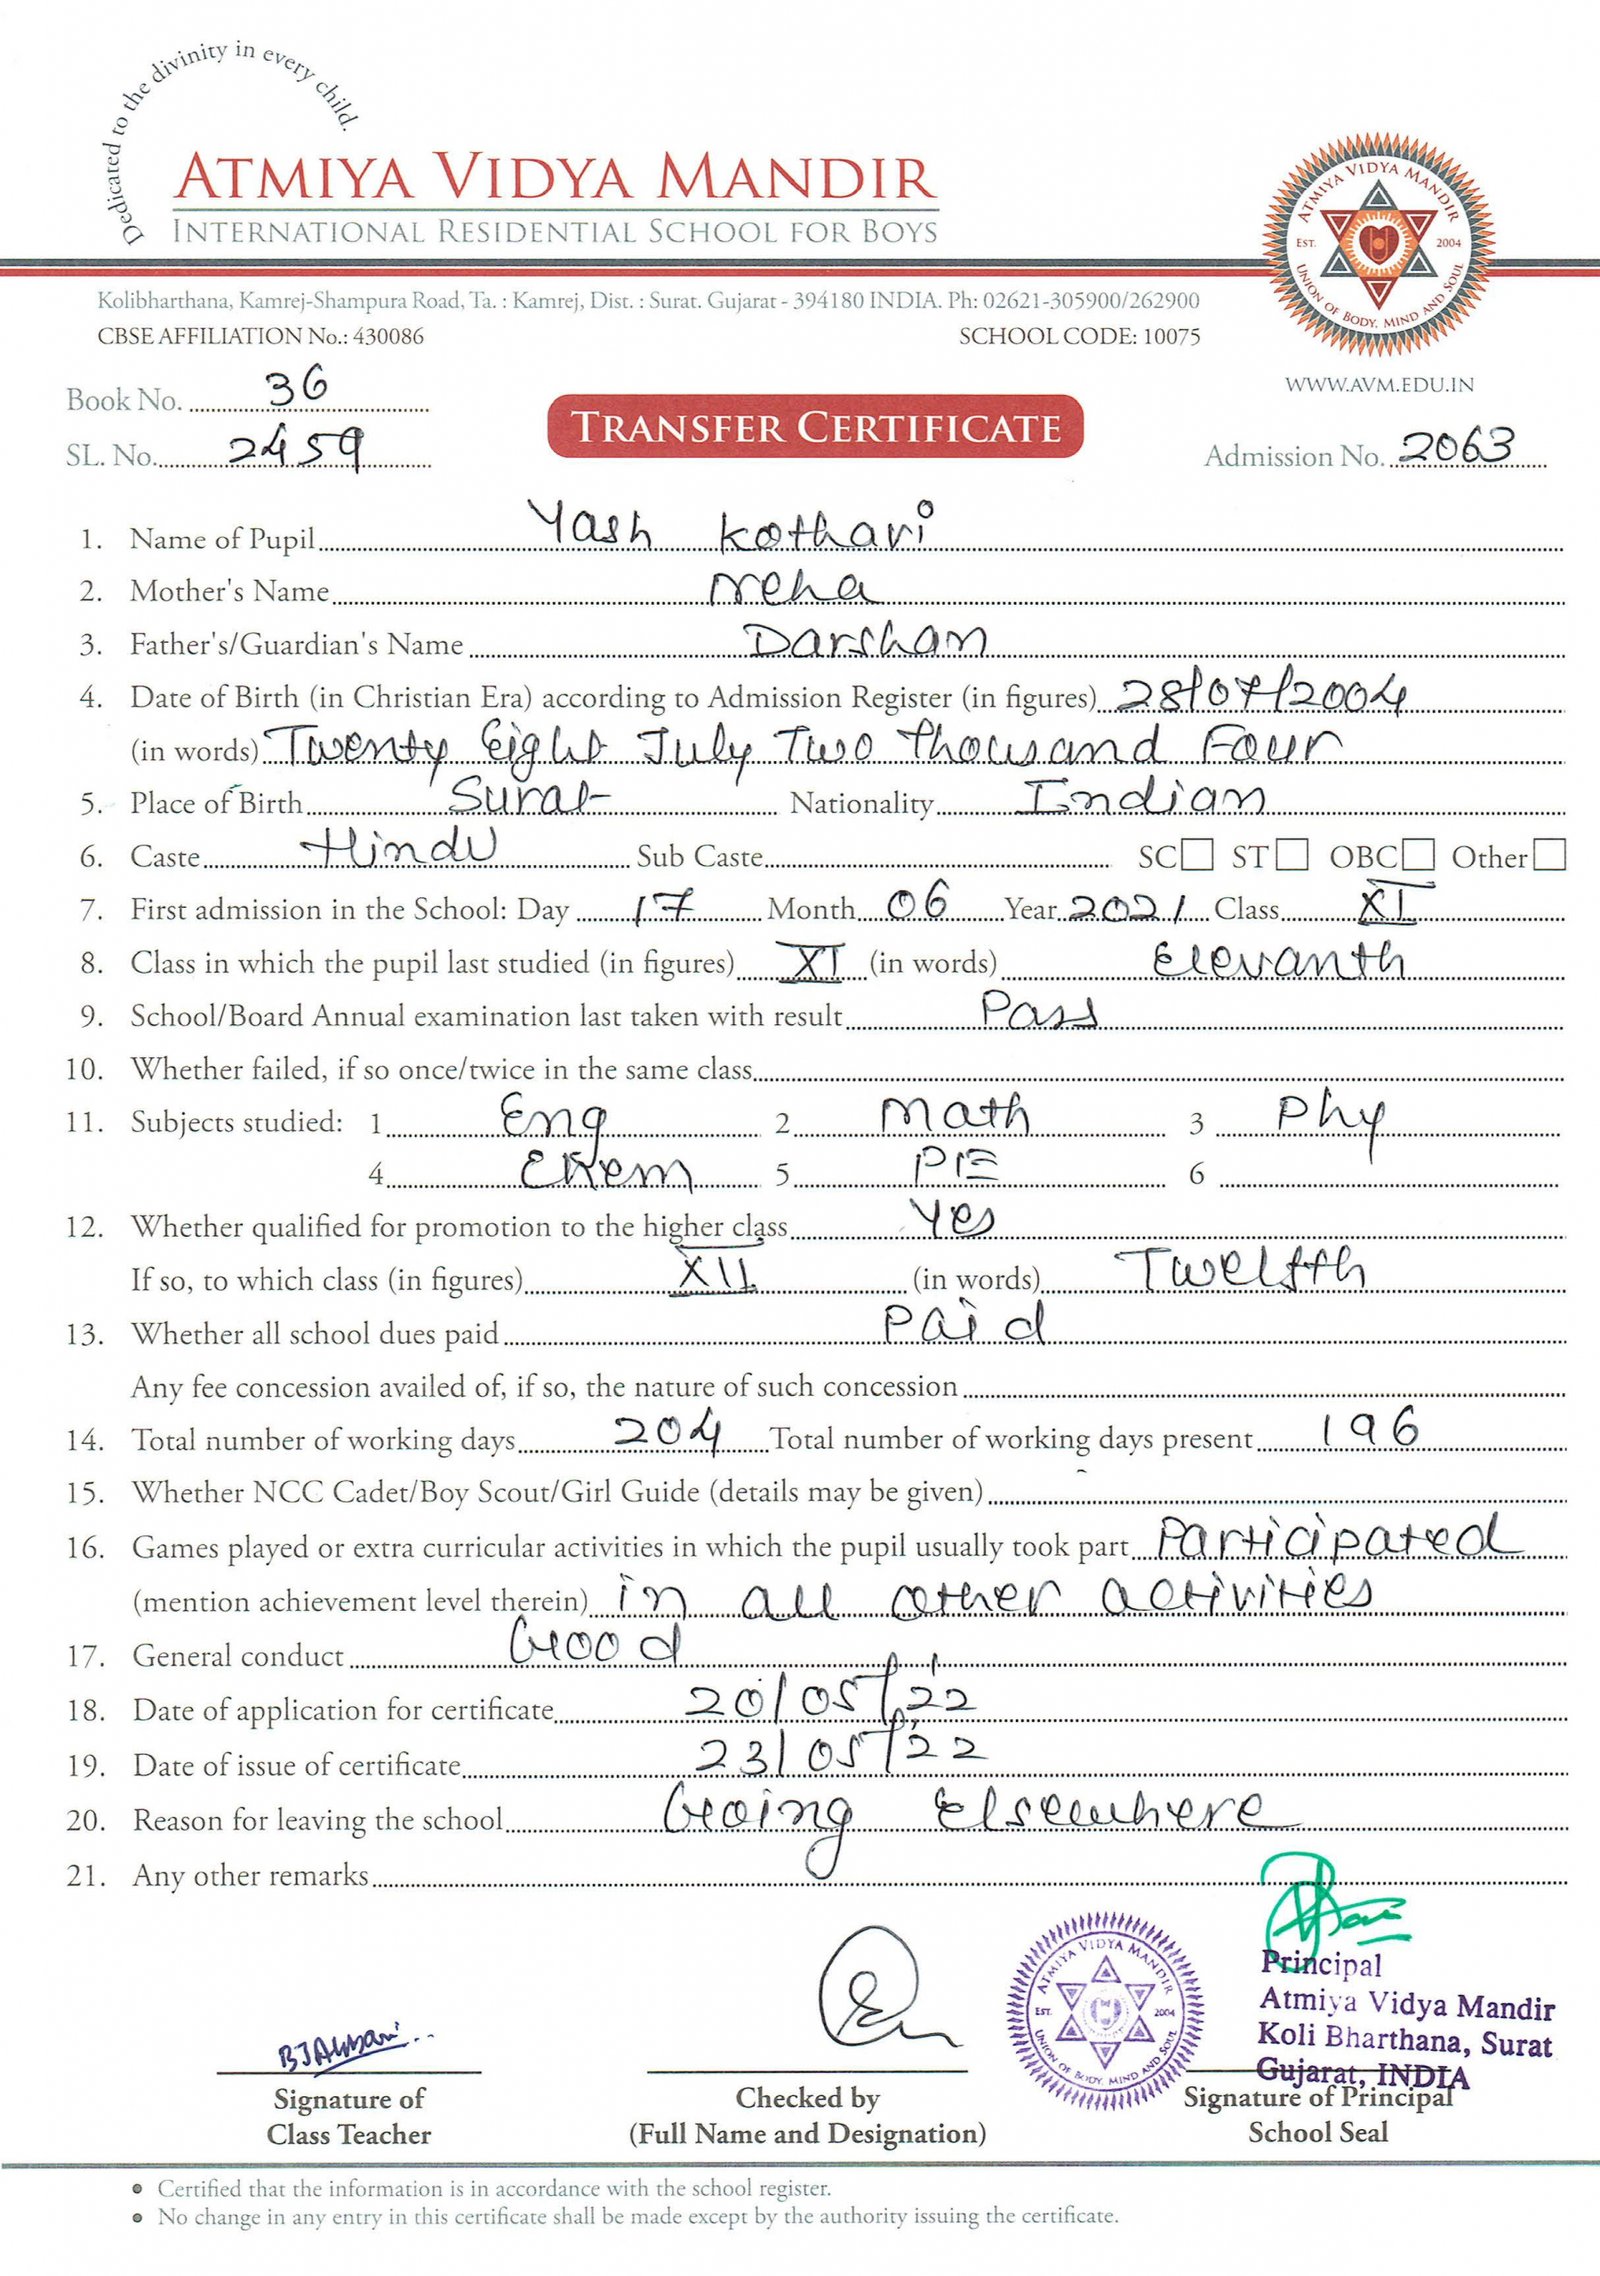 Dedicated to the divinity in every child.
ATMIYA VIDYA MANDIR
INTERNATIONAL RESIDENTIAL SCHOOL FOR BOYS
ATMIYA VIDYA MANDIR
EST. 2004
UNION OF BODY, MIND AND SOUL
Kolibharthana, Kamrej-Shampura Road, Ta. : Kamrej, Dist. : Surat. Gujarat - 394180 INDIA. Ph: 02621-305900/262900
CBSE AFFILIATION No.: 430086 SCHOOL CODE: 10075
WWW.AVM.EDU.IN
Book No. 36
TRANSFER CERTIFICATE
SL. No. 2459 Admission No. 2063
1. Name of Pupil Yash Kothari
2. Mother's Name Neha
3. Father's/Guardian's Name Darshan
4. Date of Birth (in Christian Era) according to Admission Register (in figures) 28/07/2004
(in words) Twenty Eight July Two thousand Four
5. Place of Birth Surat Nationality Indian
6. Caste Hindu Sub Caste SC ST OBC Other
7. First admission in the School: Day 17 Month 06 Year 2021 Class XI
8. Class in which the pupil last studied (in figures) XI (in words) Elevanth
9. School/Board Annual examination last taken with result Pass
10. Whether failed, if so once/twice in the same class
11. Subjects studied: 1 Eng 2 Math 3 Phy
4 Chem 5 PE 6
12. Whether qualified for promotion to the higher class Yes
If so, to which class (in figures) XII (in words) Twelfth
13. Whether all school dues paid Paid
Any fee concession availed of, if so, the nature of such concession
14. Total number of working days 204 Total number of working days present 196
15. Whether NCC Cadet/Boy Scout/Girl Guide (details may be given)
16. Games played or extra curricular activities in which the pupil usually took part Participated
(mention achievement level therein) in all other activities
17. General conduct Good
18. Date of application for certificate 20/05/22
19. Date of issue of certificate 23/05/22
20. Reason for leaving the school Going Elsewhere
21. Any other remarks
ATMIYA VIDYA MANDIR
EST. 2004
UNION OF BODY, MIND AND SOUL
Principal
Atmiya Vidya Mandir
Koli Bharthana, Surat
Gujarat, INDIA
Signature of Checked by Signature of Principal
Class Teacher (Full Name and Designation) School Seal
• Certified that the information is in accordance with the school register.
• No change in any entry in this certificate shall be made except by the authority issuing the certificate.